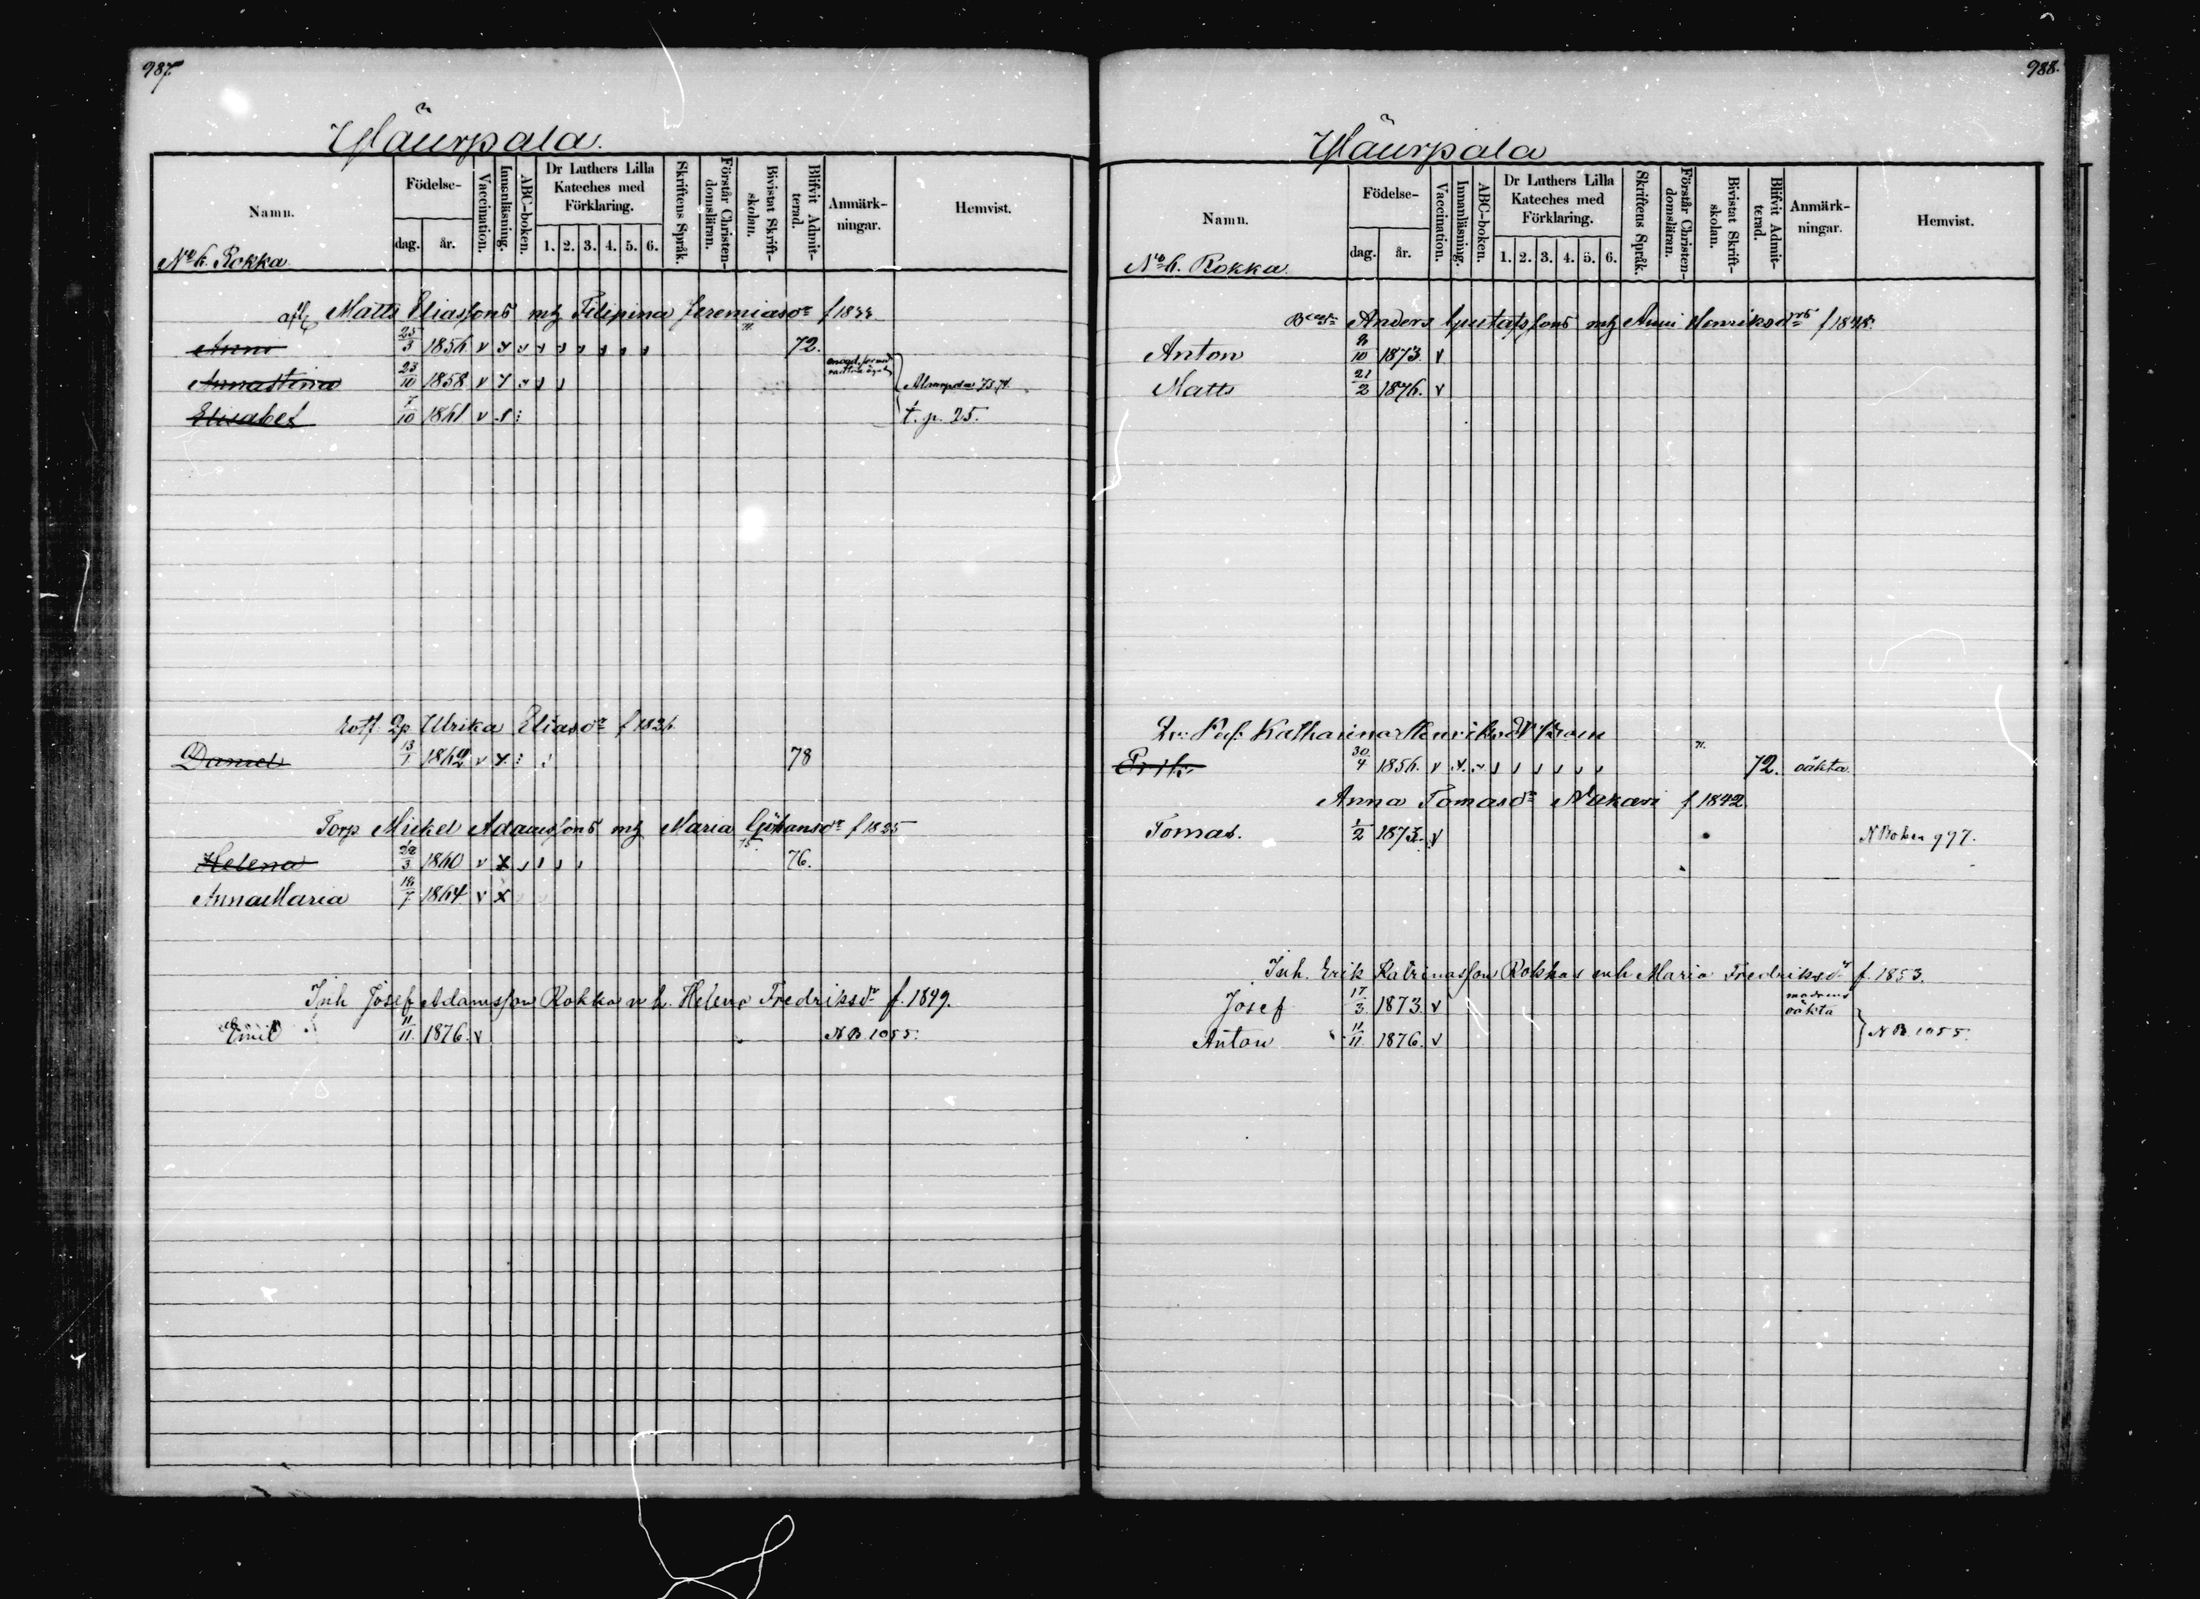 987
Yläurpala.
Namn.
Födelse-
dag.
år.
Vaccination.
Innanläsning.
ABC-boken.
Dr Luthers Lilla
Kateches med
Förklaring.
1. 2. 3. 4. 5. 6.
Skriftens Språk.
Förstår Christen-
domsläran.
Bivistat Skrift-
skolan.
Blifvit Admit-
terad.
Anmärk-
ningar.
Hemvist.
No 6. Rokka
Matts Eliassons mh Filipina Jeremiasdr f 1833
Anna 25/3 1856 v 72.
Annastina 23/10 1858 v
Elisabet 7/10 1861 v t. p. 25.
Ulrika Eliasdr f 1826
Daniel 13/1 1862 v 78
Torp Mickel Adamssons mh Maria Göransdr f 1825
Helena 22/3 1860 v x 76.
Anna Maria 18/7 1864 v x
Inh Josef Adamsson Rokka m h. Helena Fredriksdr f. 1849.
Emil 11/11 1876. v N B. 1055.
988.
Yläurpala
Namn.
Födelse-
dag.
år.
Vaccination.
Innanläsning.
ABC-boken.
Dr Luthers Lilla
Kateches med
Förklaring.
1. 2. 3. 4. 5. 6.
Skriftens Språk.
Förstår Christen-
domsläran.
Bivistat Skrift-
skolan.
Blifvit Admit-
terad.
Anmärk-
ningar.
Hemvist.
No 6. Rokka.
Anders Gustafssons mh Anni Henriksdr f 1848.
Anton /10 1873. v
Matts 21/2 1876. v
Katharina Henriksdr
Erik 30/4 1856. v 72. oäkta.
Anna Tomasdr f 1842
Tomas. 1/2 1873. v 997.
Inh. Erik Katrinasson Rokka mh Maria Fredriksdr f. 1853.
Josef 17/3 1873. v modrens
oäkta
Anton 11/11 1876. v } N B. 1055.